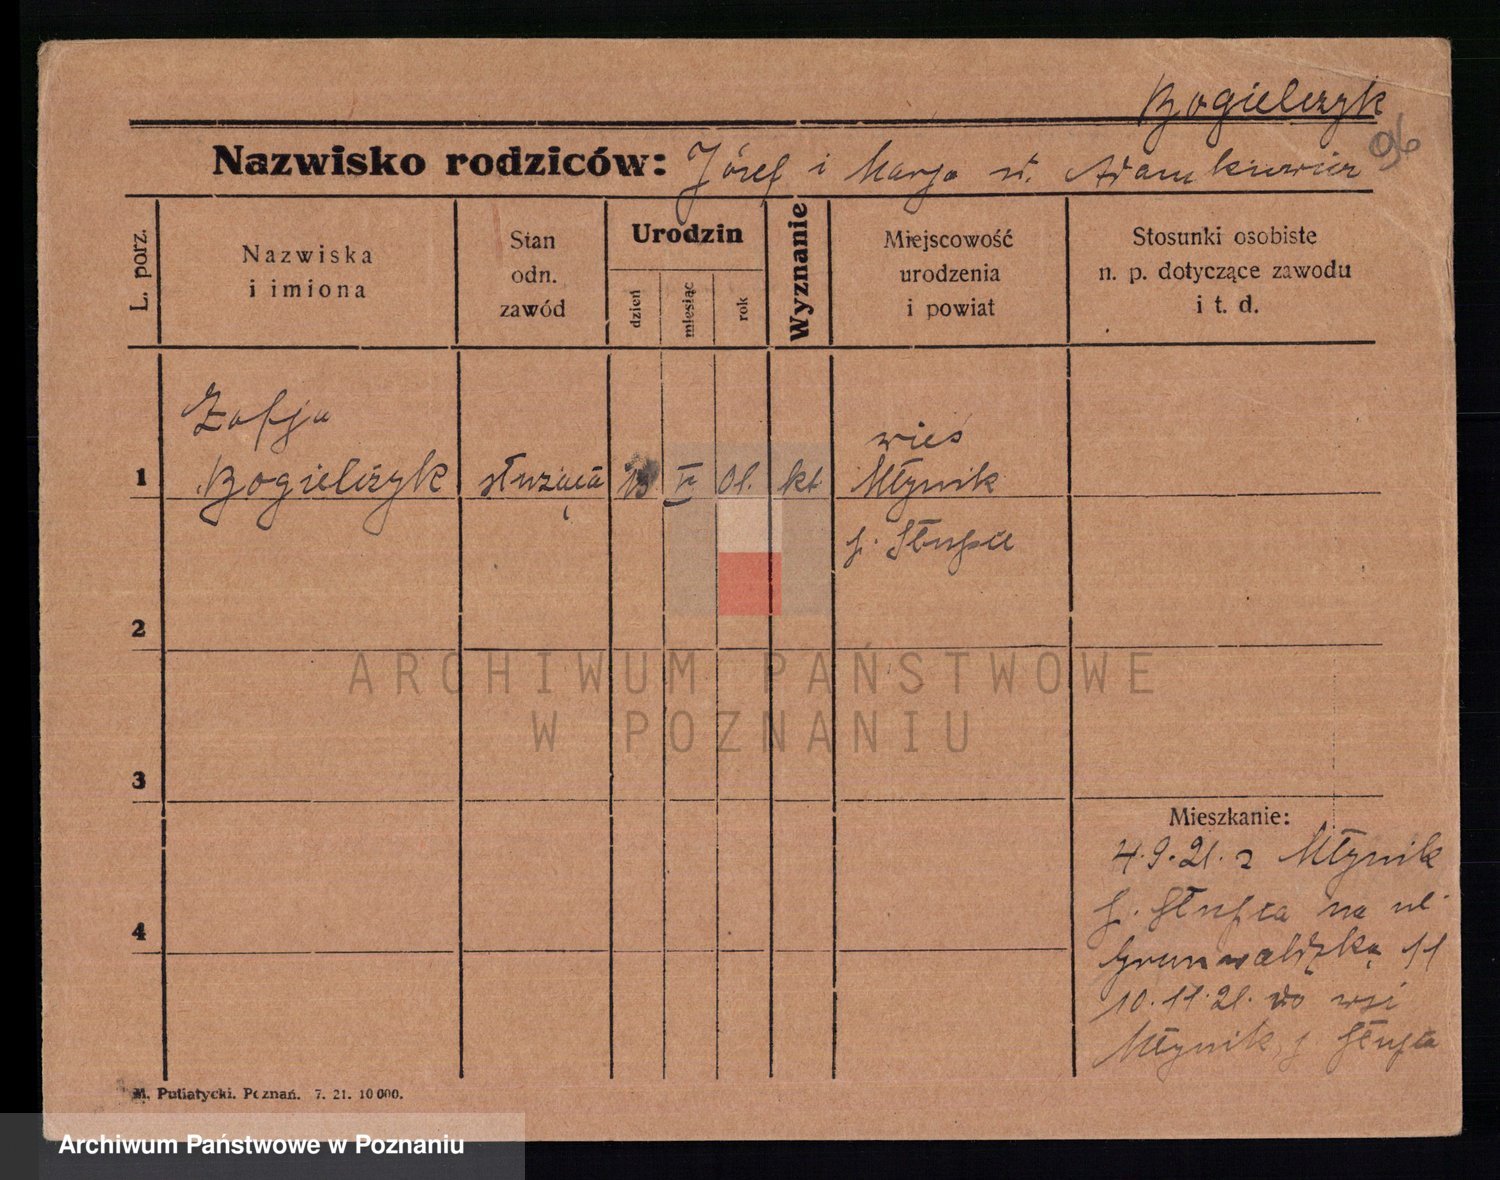 Bogielczyk
96
Nazwisko rodziców: Józef i Marja z d. Adamkiewicz
L. porz.
Nazwiska
i imiona
Stan
odn.
zawód
Urodzin
dzień
miesiąc
rok
Wyznanie
Miejscowość
urodzenia
i powiat
Stosunki osobiste
n. p. dotyczące zawodu
i t. d.
Zofja
1 Bogielczyk służąca V 01. kt
wieś
Młynik
p. Słupca
2
3
4
Mieszkanie:
4.9.21. z Młynik
p. Słupca na ul.
Grunwaldzką 11
10.11.21. do wsi
Młynik p. Słupca
M. Putiatycki. Poznań. 7. 21. 10 000.
ARCHIWUM PAŃSTWOWE
W POZNANIU
Archiwum Państwowe w Poznaniu